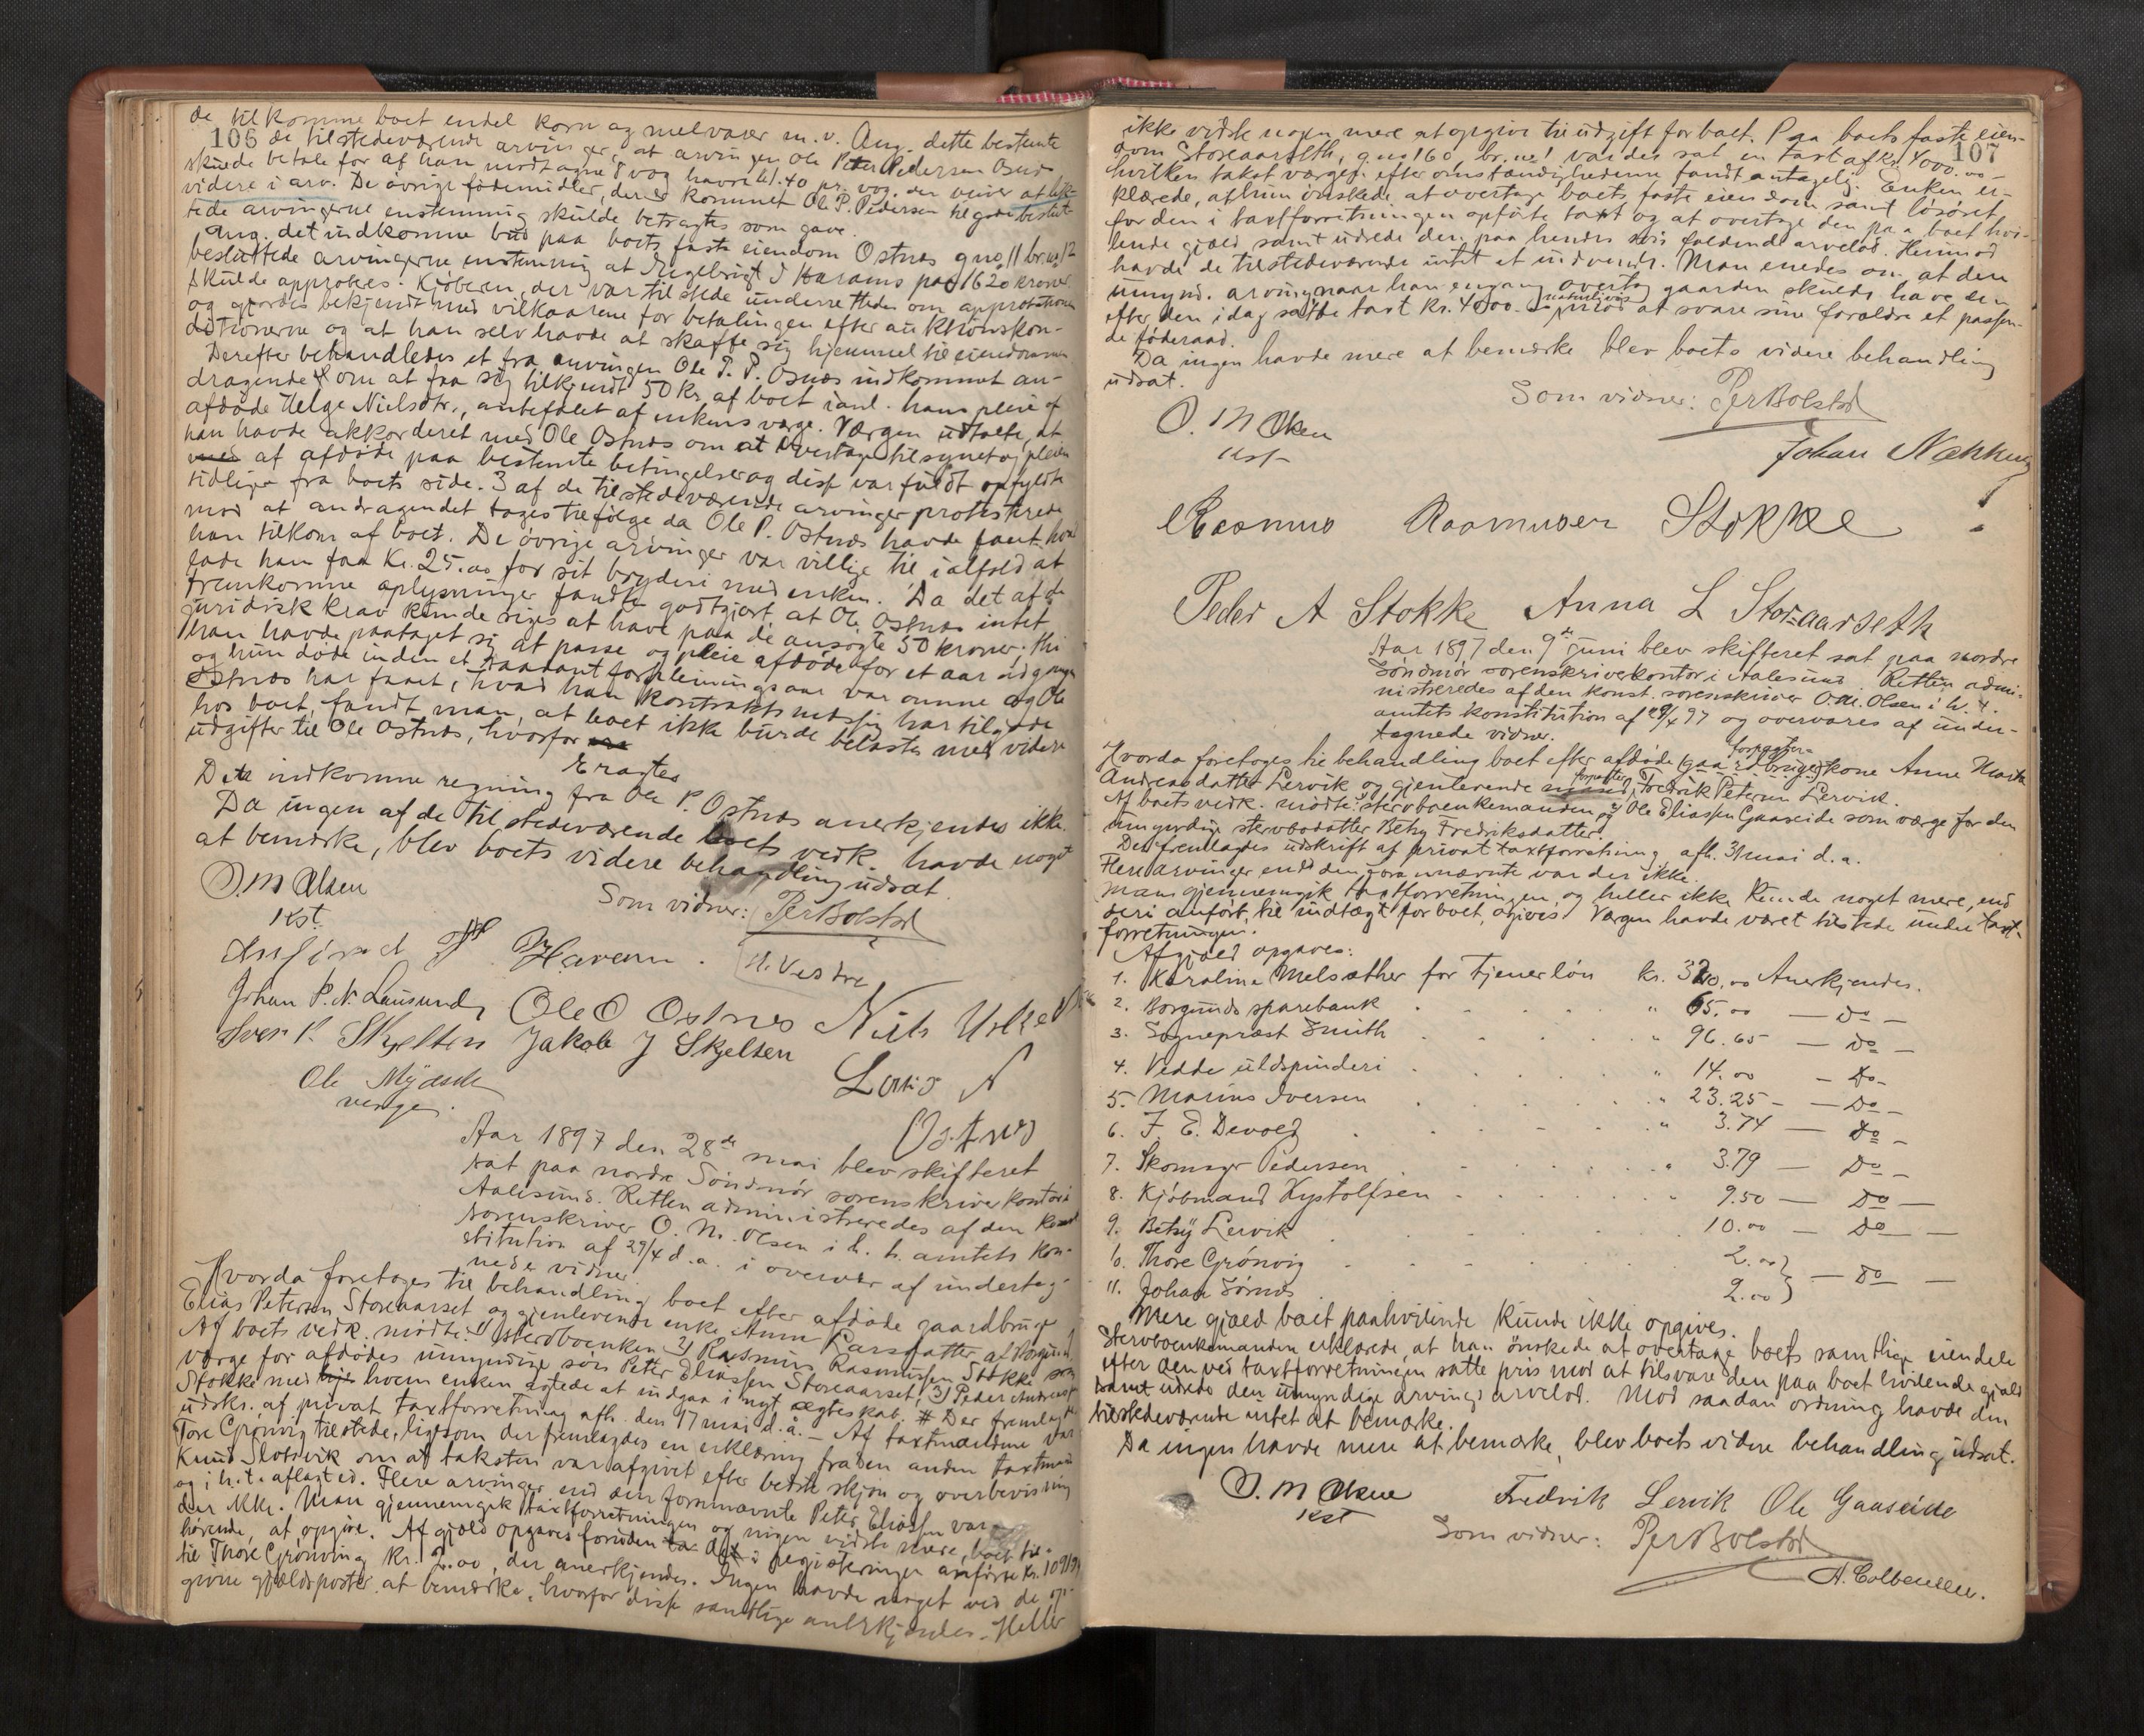 106
de tilkomme boet endel korn og melvarer m. v. Ang. dette bestemte
de tilstedeværende arvinger, at arvingen Ole Peter Pedersen Osnes
skulde betale for af ham modtagne 8 vog havre kl. 40 pr. vog, der
videre i arv. De øvrige fødemidler, der er kommet Ole P. Pedersen tilgode beslut-
tede arvingerne enstemmig skulde betragtes som gave.
Ang. det indkomne bud paa boets faste eiendom Ostnes gno. 11 br. no. 12
besluttede arvingerne enstemmig at Ingebrigt J Harams paa 1620 kroner
skulde approberes. Kjøberen, der var tilstede underrettedes om approbationen
og gjordes bekjendt med vilkaarene for betalingen efter auktionskon-
ditionerne og at han selv havde at skaffe sig hjemmel til eiendommen
Derefter behandledes et fra arvingen Ole P. P. Osnes indkommet an-
dragende om at faa sig tilkjendt 50 kr. af boet i anl. hans pleie af
afdøde Helge Nielsdtr., anbefalet af enkens værge. Værgen udtalte, at
han havde akkorderet med Ole Ostnes om at overtage tilsynet og pleien
af afdøde paa bestemte betingelser og disse var fuldt opfyldte
tidligere fra boets side. 3 af de tilstedeværende arvinger protesterede
mod at andragendet toges tilfølge da Ole P. Ostnes havde faaet hvad
han tilkom af boet. De øvrige arvinger var villige til ialfald at
lade ham faa Kr. 25.00 for sit bryderi med enken. Da det af de
fremkomne oplysninger fandtes godtgjort, at Ole Ostnes intet
juridisk krav kunde siges at have paa de ansøgte 50 kroner, thi
han havde paataget sig at passe og pleie afdøde for et aar ad gangen
og hun døde inden et saadant forpleiningsaar var omme og Ole
Ostnes har faaet, hvad han kontraktsmæssig har tilgode
hos boet, fandt man, at boet ikke burde belastes med videre
udgifter til Ole Ostnes, hvorfor
Eragtes
Den indkomne regning fra Ole P. Ostnes anerkjendes ikke.
Da ingen af de tilstedeværende boets vedk. havde noget
at bemærke, blev boets videre behandling udsat.
O. M Olsen
kst.
Som vidner: Per Bolstad
N. Vestre
Johan P. N. Lausund, Ole O Ostnes Niels
Iver P. Skjelten Jakob J Skjelten
Ole Myasch
verge.
Lars N
Ostnes
Aar 1897 den 28de mai blev skifteret
sat paa nordre Søndmør sorenskriverkontor i
Aalesund. Retten administreredes af den konst
sorenskriver O. M. Olsen i h. t. amtets kon-
stitution af 29/4 d. a. i overvær af underteg-
nede vidner
Hvorda foretoges til behandling boet efter afdøde gaardbruger
Elias Petersen Storeaarset og gjenlevende enke Anne Larsdatter af Borgund.
Af boets vedk. mødte: 1) Stervboenken 2) Rasmus Rasmussen Stokke som
værge for afdødes umyndige søn Peter Eliassen Storeaarset, 3) Peder Andreas
Stokke med hvem enken agtede at indgaa i nyt ægteskab. # Der fremlagdes
udskr. af privat taxtforretning afh. den 17 mai d. å. – Af taxtmændene var
Tore Grønvig tilstede, ligesom der fremlagdes en erklæring fra den anden taxtmand
Knud Slotsvik om at taksten var afgivet efter bedste skjøn og overbevisning
og i h. t. aflagt ed. Flere arvinger end den fornævnte Peter Eliassen var
der ikke. Man gjennemgik taxtforretningen og ingen vidste mere, boet til-
hørende, at opgive. Af gjæld opgaves foruden det i registeringen anførte Kr.
til Thore Grønving Kr. 2.00, der anerkjendes. Ingen havde noget ved de op-
givne gjældsposter at bemærke, hvorfor disse samtlige anerkjendes. Heller
107
ikke vidste nogen mere at opgive til udgift for boet. Paa boets faste eien-
dom Storeaarseth, g. no 160, br. no 1 var der sat en taxt af kr. 4000.00 –
hvilken takst værgen efter omstændighederne fandt antagelig. Enken er-
klærede, at hun ønskede at overtage boets faste eiendom samt løsøret
for den i taxtforretningen opførte taxt og at overtage den paa boet hvi-
lende gjæld samt udrede den paa hendes søn faldende arvelod. Herimod
havde de tilstedeværende intet at indvende. Man enedes om, at den
umynd. arving naar han engang overtog gaarden skulde have den
efter den idag satte taxt kr. 4000.– naturligvis at svare sine forældre et passen-
de føderaad.
Da ingen havde mere at bemærke blev boets videre behandling
udsat.
Som vidner: Per Bolstad
O. M Olsen
kst
Johan Nekking
Rasmus Rasmusen Stokke
Peder A Stokke Anna L Storaarseth
Aar 1897 den 9de juni blev skifteret sat paa nordre
Søndmør sorenskriverkontor i Aalesund. Retten admi-
nistreredes af den konst. sorenskriver O. M. Olsen i h. t.
amtets konstitution af 29/4 97 og overvares af under-
tegnede vidner.
Hvorda foretoges til behandling boet efter afdøde (gaardbruger) forpagter- kone Anne Marta
Andreasdatter Lervik og gjenlevende forpagter Fredrik Petersen Lervik.
Af boets vedk. mødte: stervboenkemanden og Ole Eliassen Gaaseide som værge for den
umyndige stervbodatter Betsy Fredriksdatter.
Der fremlagdes udskrift af privat taxtforretning afh. 31 mai d. a.
Flere arvinger end den foran nævnte var der ikke.
Man gjennemgik taxtforretningen, og heller ikke kunde noget mere, end
deri anført, til indtægt for boet, opgives. Værgen havde været tilstede under taxt-
forretningen.
Af gjæld opgaves:
1. Karoline Melsæther for tjenerløn kr. 320.00 Anerkjendes.
2. Borgunds sparebank " 65.00 — Do —
3. Sogneprest Smith " 96.65 — Do —
4. Vedde uldspinderi " 14.00 — Do —
5. Marius Iversen " 23.25 — Do —
6. J. E. Devold " 3.74 — Do —
7. Skomager Pedersen " 3.79 — Do —
8. Kjøbmand Kystolfsen " 9.50 — Do —
9. Betsy Lervik 10.00 — Do —
10. Thore Grønvig 2.00 } — Do —
11. Johan Sørnes 2.00 }
Mere gjæld boet paahvilende kunde ikke opgives.
Stervboenkemanden erklærede, at han ønskede at overtage boets samtlige eiendele
efter den ved taxtforretningen satte pris mod at tilsvare den paa boet hvilende gjæld
samt udrede den umyndige arvings arvelod. Mod saadan ordning havde den
tilstedeværende intet at bemærke.
Da ingen havde mere at bemærke, blev boets videre behandling udsat.
O. M Olsen
kst
Fredrik Lervik Ole Gaaseide
Som vidner: Per Bolstad
A. Colbensen.